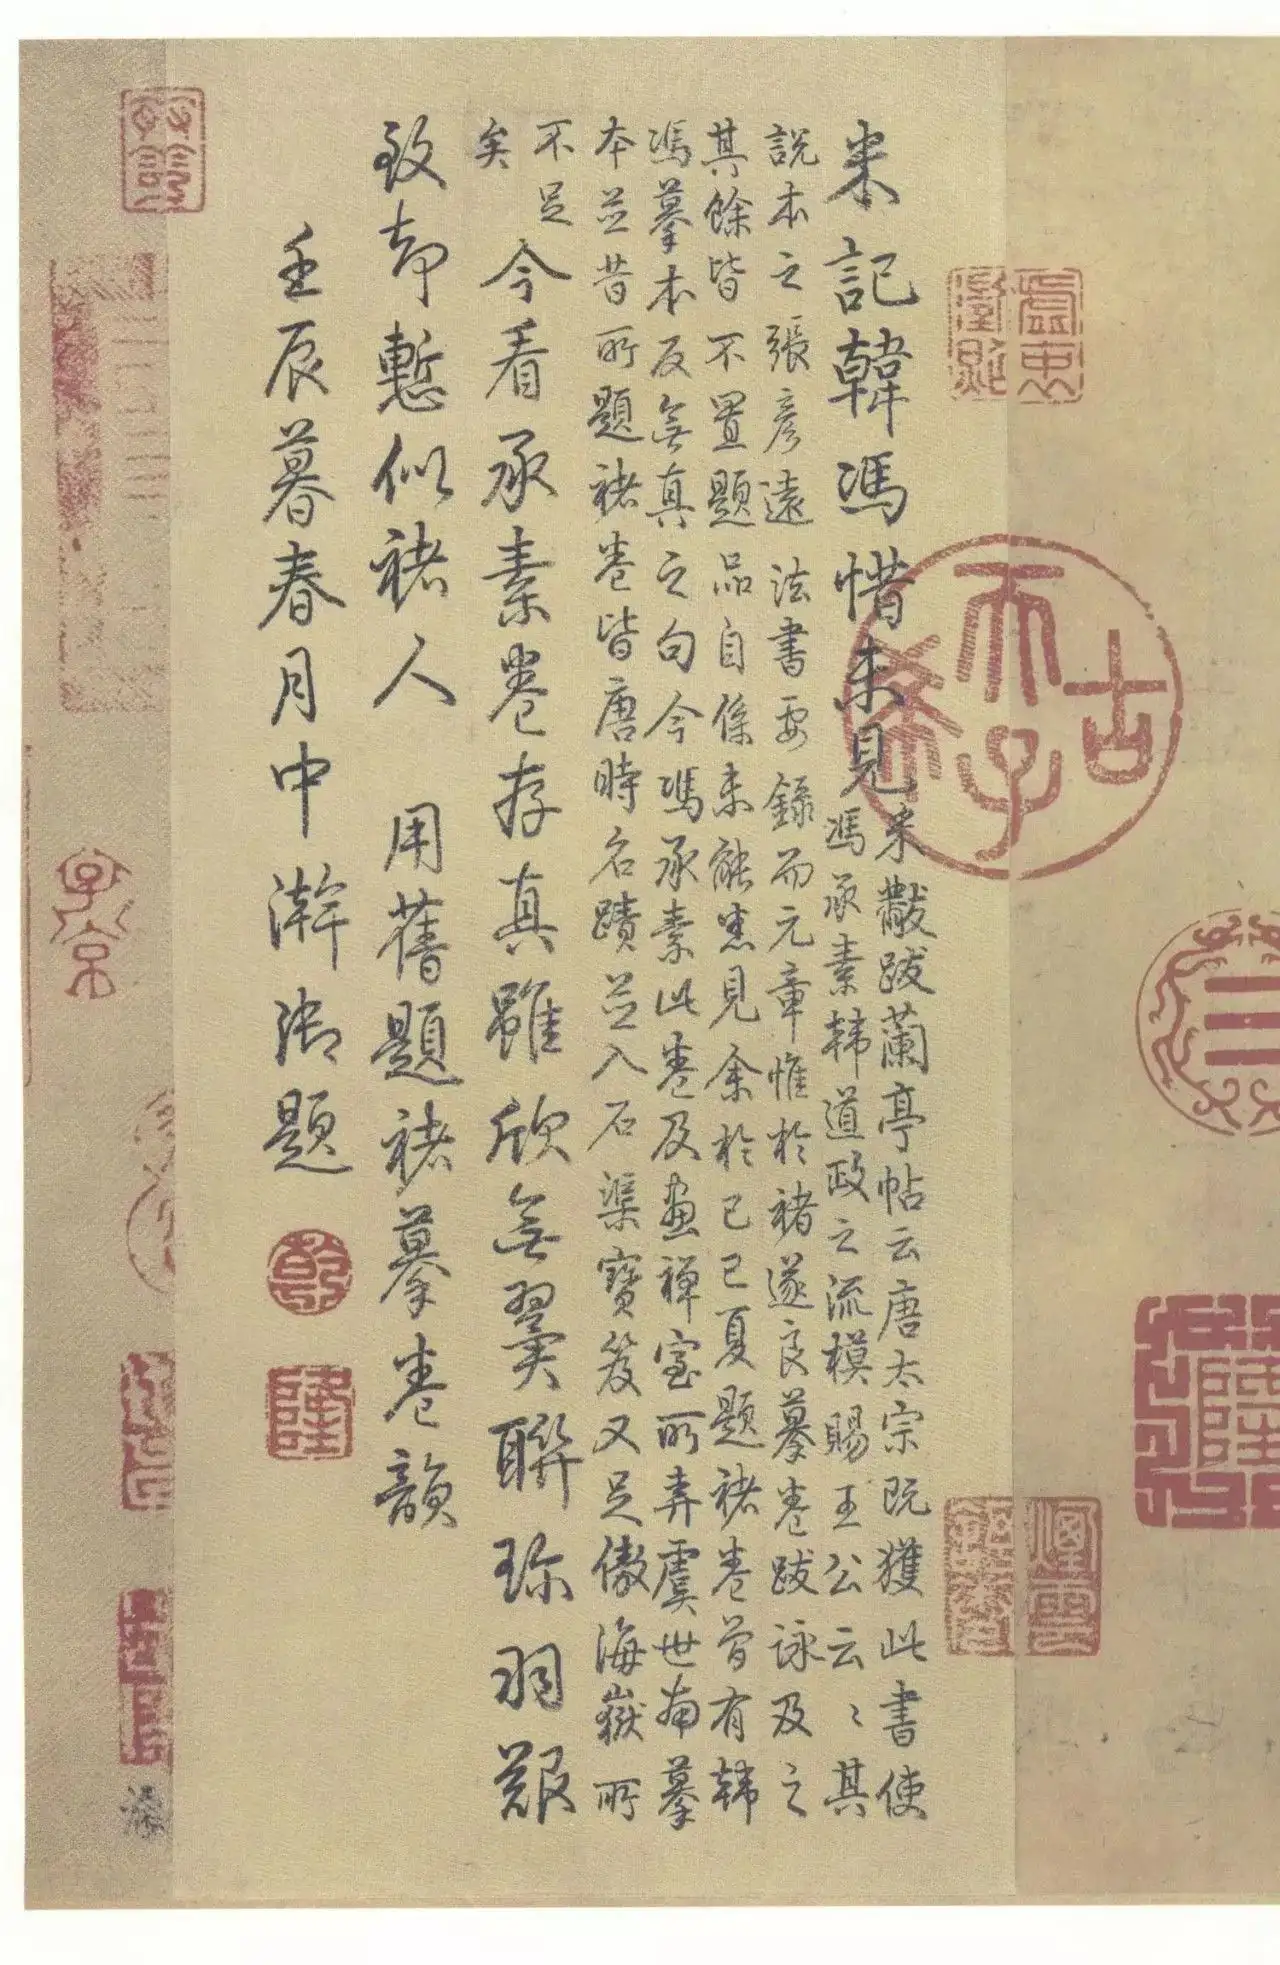 米記韓馮惜未見米黻跋蘭亭帖云唐太宗既獲此書使
馮承素韓道政之流模賜王公云〻其
說本之張彥遠法書要錄而元章惟於褚遂良摹卷跋詠及之
其餘皆不置題品自係未能悉見余於己巳夏題褚卷曾有韓
馮摹本反無真之句今馮承素此卷及畫禪室所弆虞世南摹
本並昔所題褚卷皆唐時名蹟並入石渠寶笈又足傲海嶽所
不足
矣
今看承素卷存真雖欣無翼聯珎羽艱
致却慙似褚人 用舊題褚摹卷韻
壬辰暮春月中澣御題
乾
隆
古
希
天
子
三